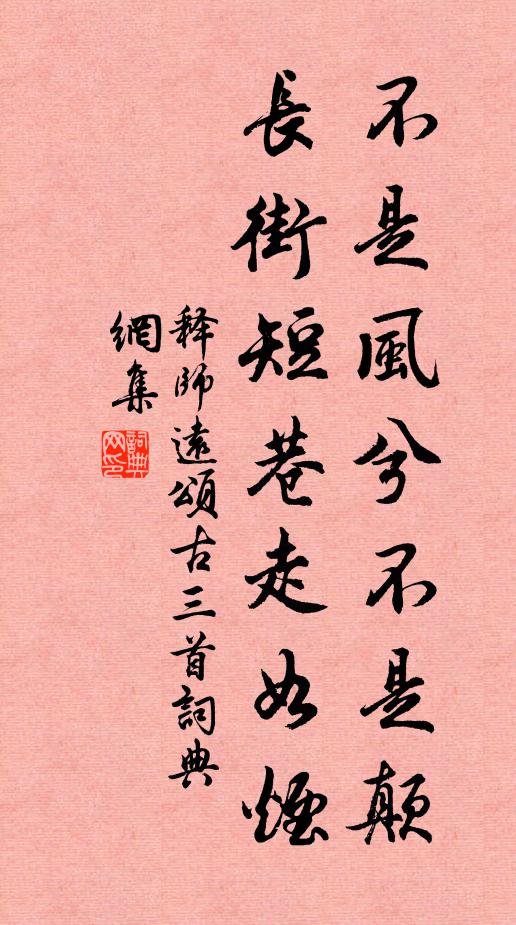 不是風兮不是顛
長街短巷走如煙
释師遠頌古三首詞典
網集
詞典
网印